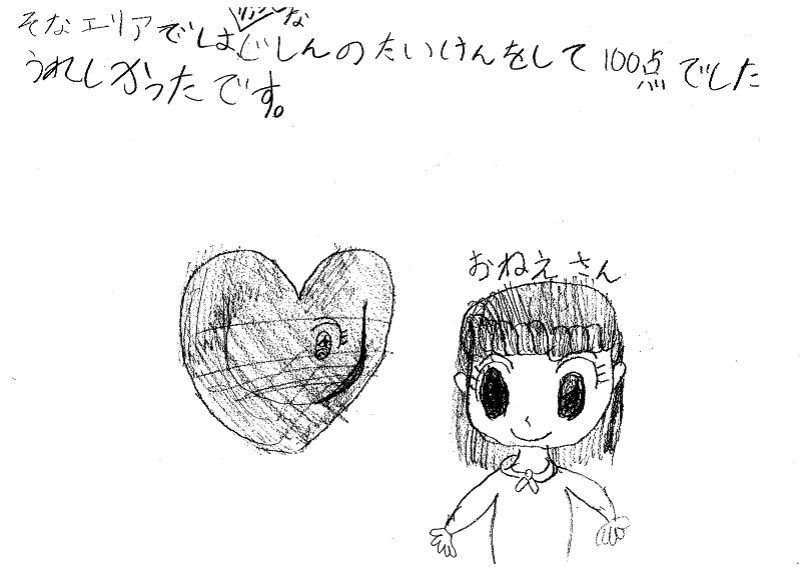 そなエリアではじしんのたいけんをして100点でした
うれしかったです。
おねえさん